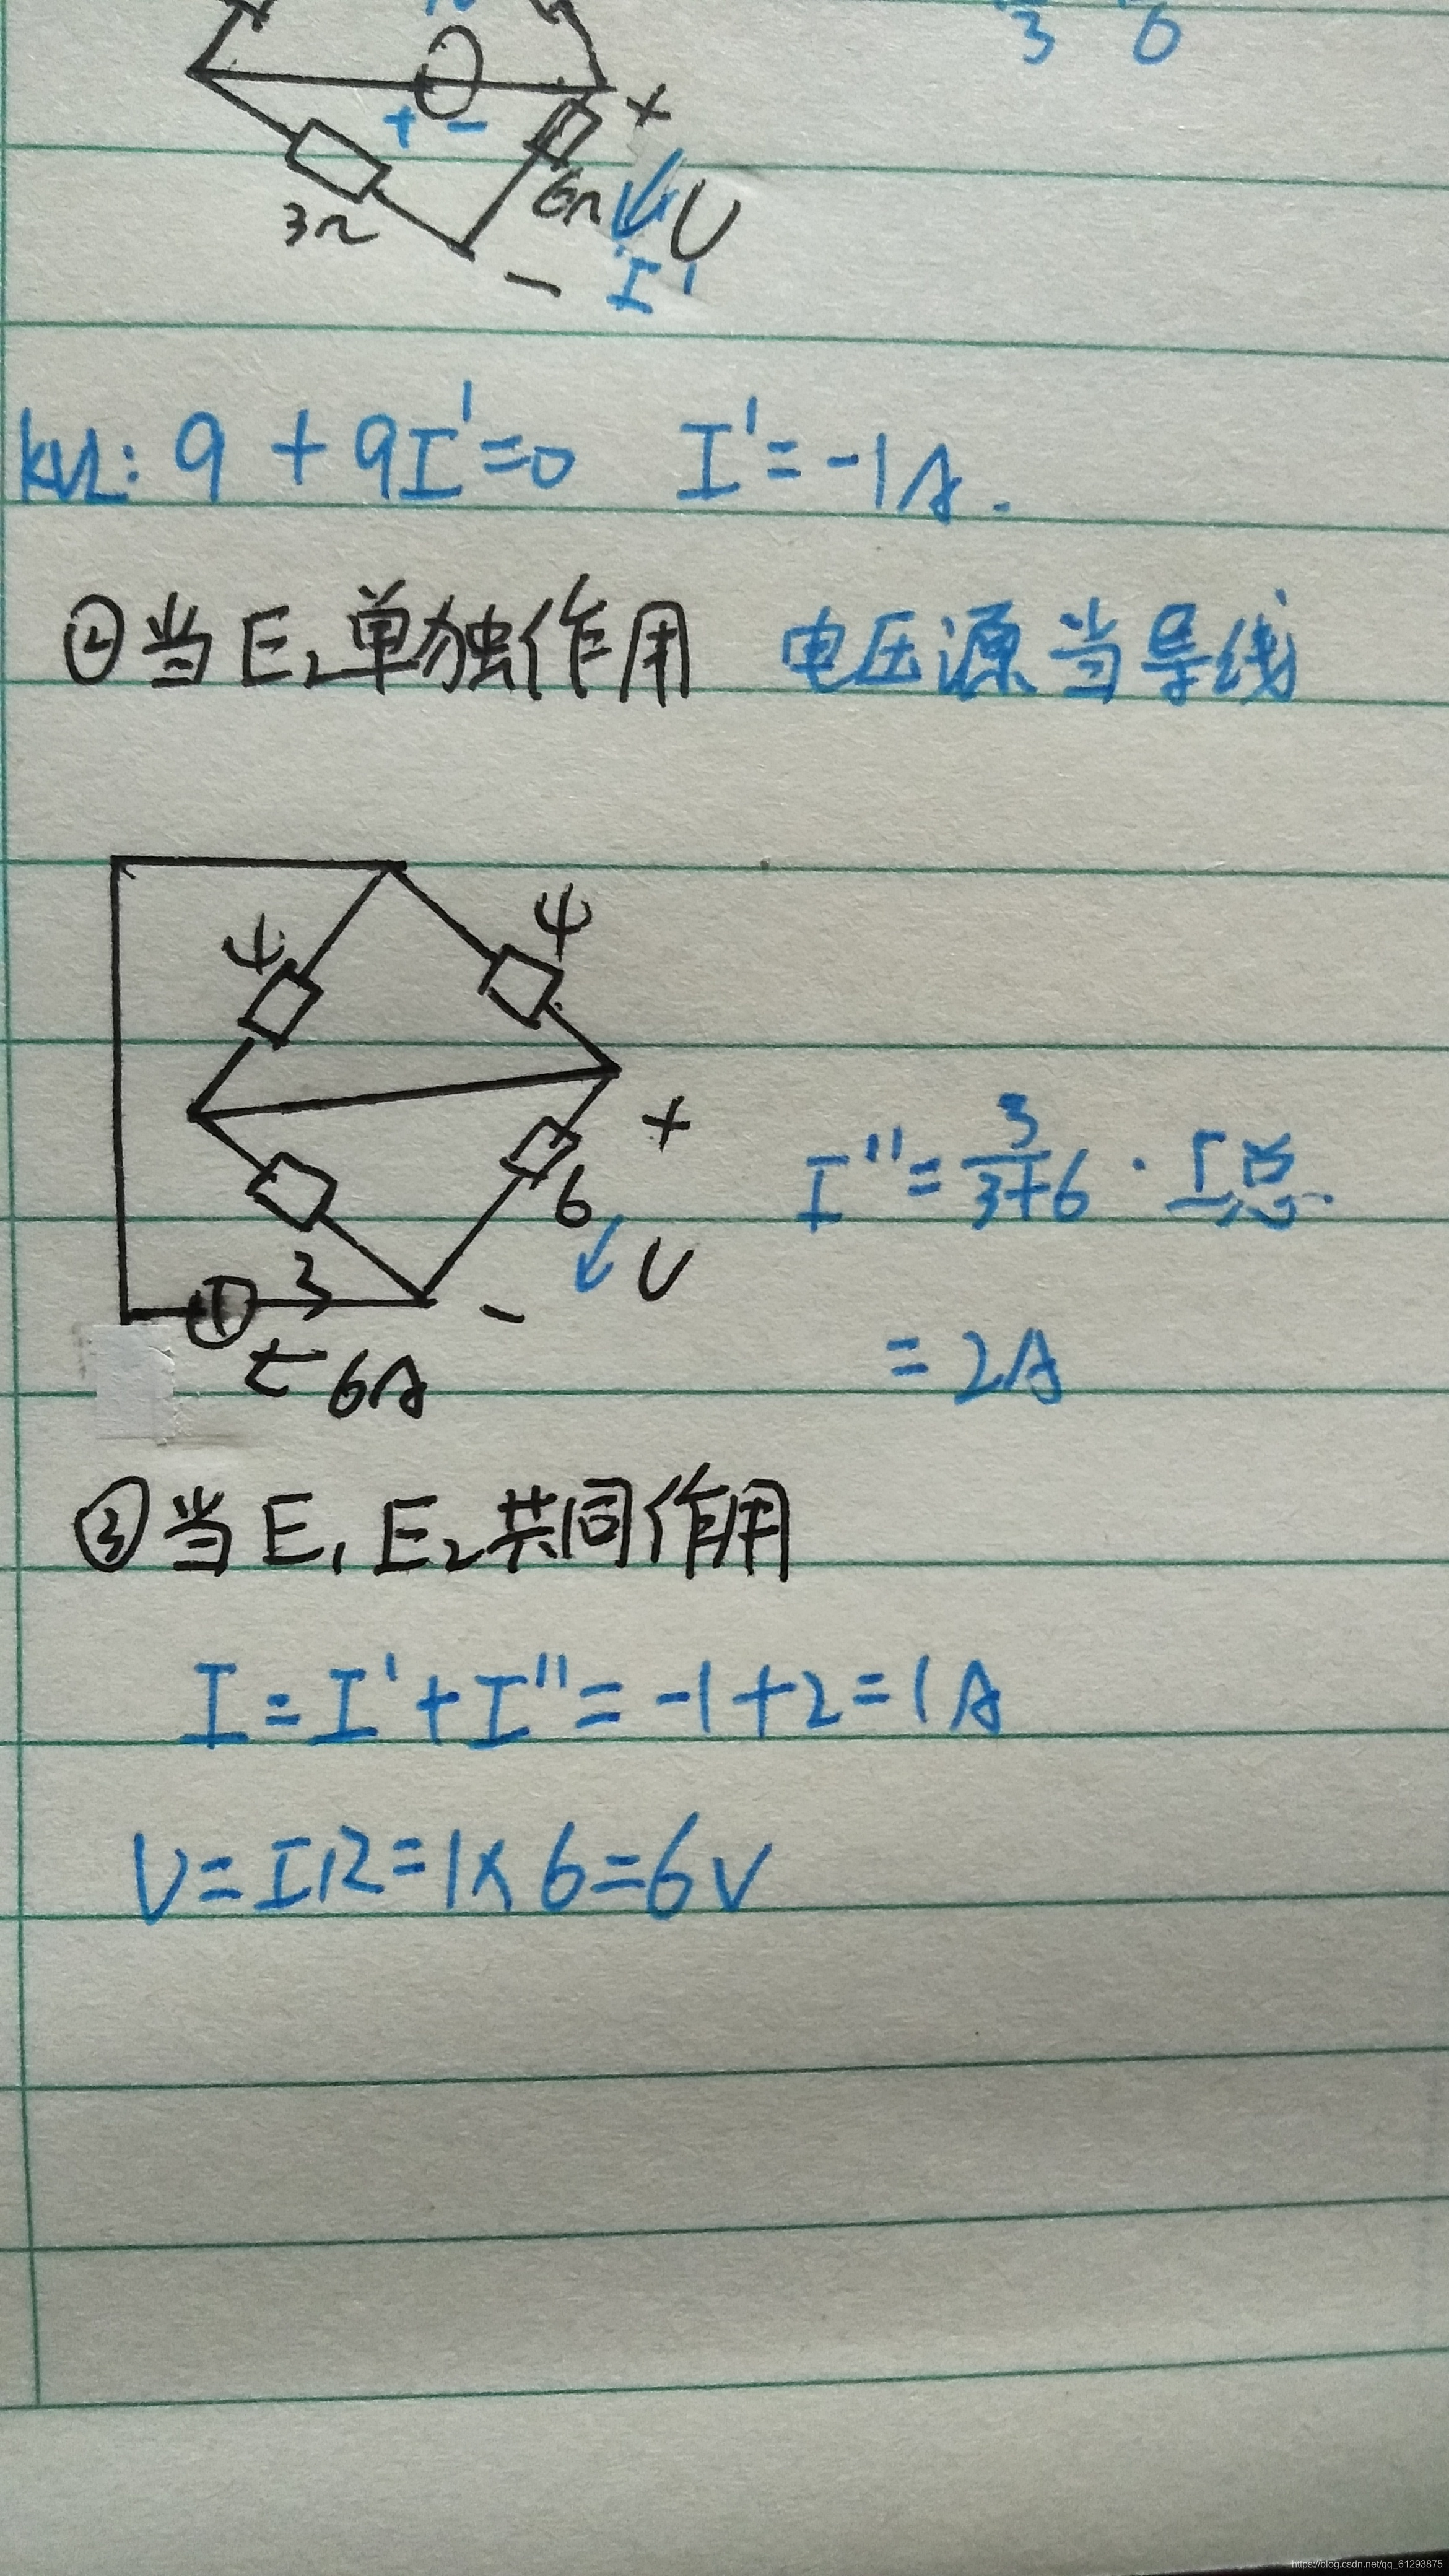 3 6
+ -
+
3Ω 6Ω U
- I'
KVL: 9 + 9I'=0 I'=-1A.
②当E₂单独作用 电压源当导线
4 4
+
6
3 U
-
←6A
I''=3/(3+6)·I总.
=2A
③当E₁E₂共同作用
I=I'+I''=-1+2=1A
U=IR=1×6=6V
https://blog.csdn.net/qq_61293875